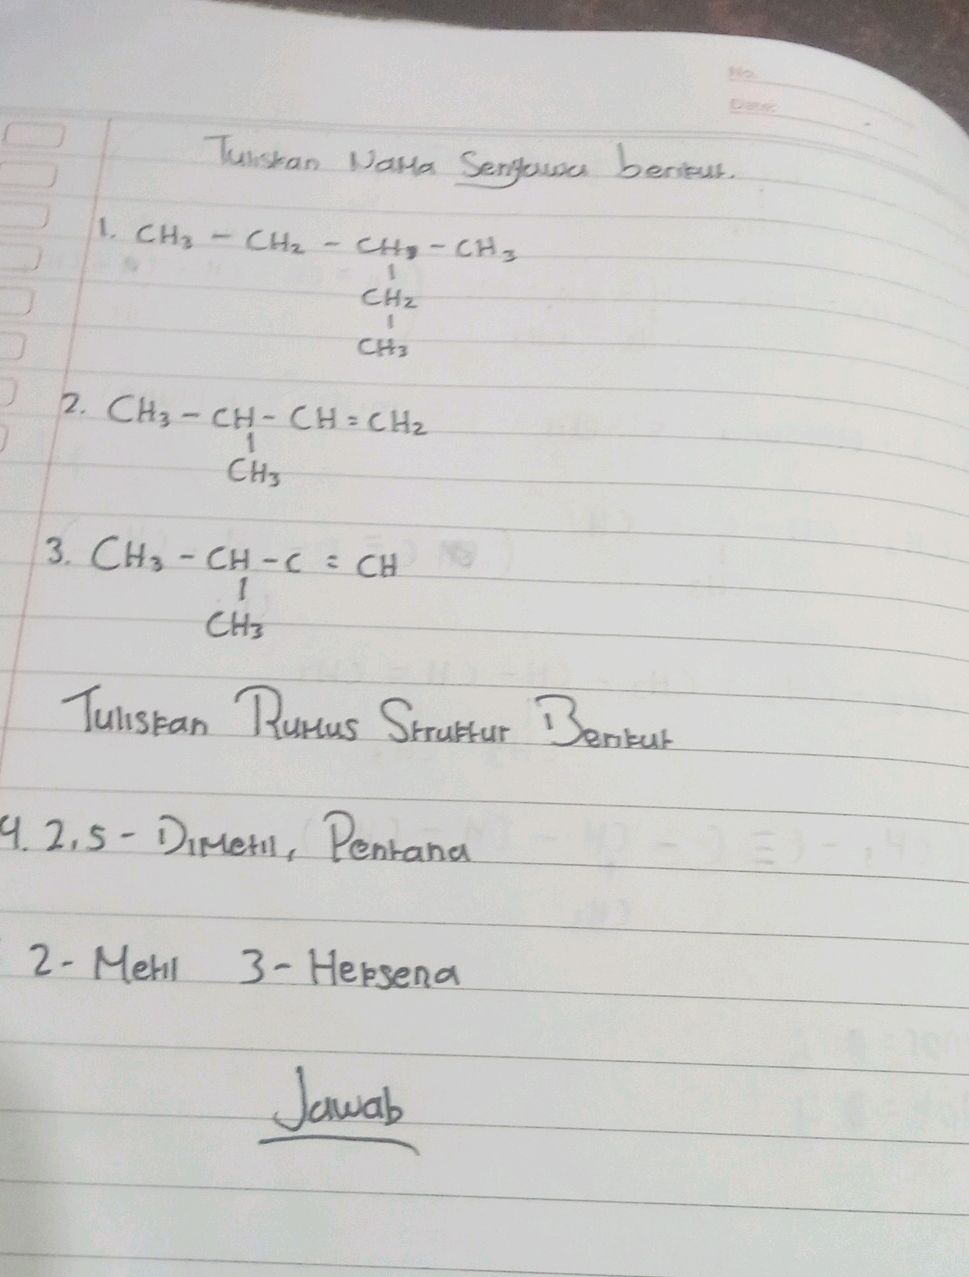 No.
Date:
Tuliskan Nama Senyawa berikut.
1. CH₃ - CH₂ - CH - CH₃
|
CH₂
|
CH₃
2. CH₃ - CH - CH = CH₂
|
CH₃
3. CH₃ - CH - C = CH
|
CH₃
Tuliskan Rumus Struktur Berikut
4. 2,5 - Dimetil, Pentana
2 - Metil 3 - Heksena
Jawab